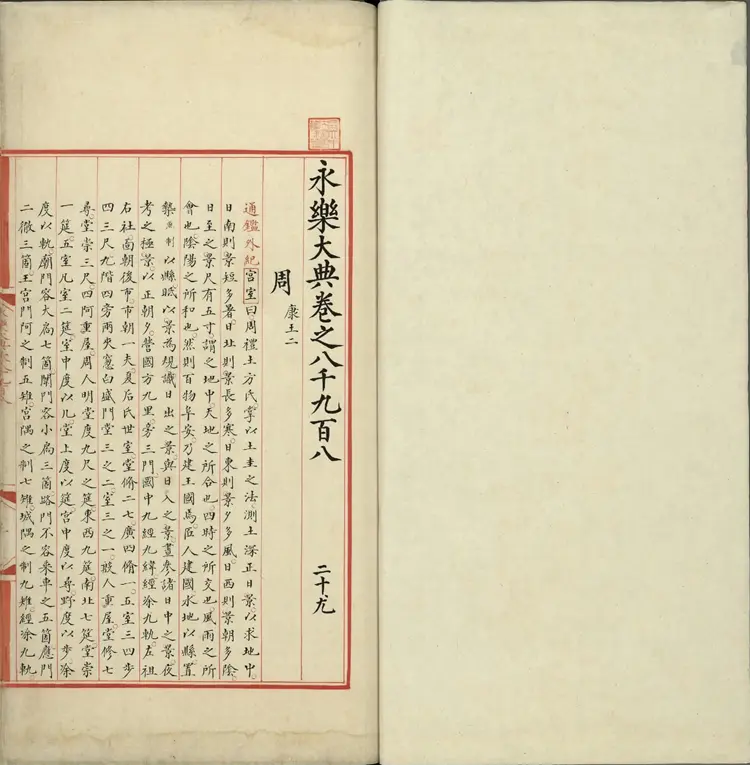 永樂大典卷之八千九百八 二十尤
周 康王二
通鑑外紀宮室曰周禮土方氏掌以土圭之法測土深正日景以求地中
日南則景短多暑日北則景長多寒日東則景夕多風日西則景朝多陰
日至之景尺有五寸謂之地中天地之所合也四時之所交也風雨之所
會也陰陽之所和也然則百物阜安乃建王國焉匠人建國水地以縣置
槷魚制以縣眡以景為規識日出之景與日入之景晝參諸日中之景夜
考之極景以正朝夕營國方九里旁三門國中九經九緯經涂九軌左祖
右社面朝後市市朝一夫夏后氏世室堂脩二七廣四脩一五室三四步
四三尺九階四旁兩夾窻白盛門堂三之二室三之一殷人重屋堂修七
尋堂崇三尺四阿重屋周人明堂度九尺之筵東西九筵南北七筵堂崇
一筵五室凡室二筵室中度以几堂上度以筵宮中度以尋野度以步涂
度以軌廟門容大扃七箇闈門容小扃三箇路門不容乘車之五箇應門
二徹三箇王宮門阿之制五雉宮隅之制七雉城隅之制九雉經涂九軌